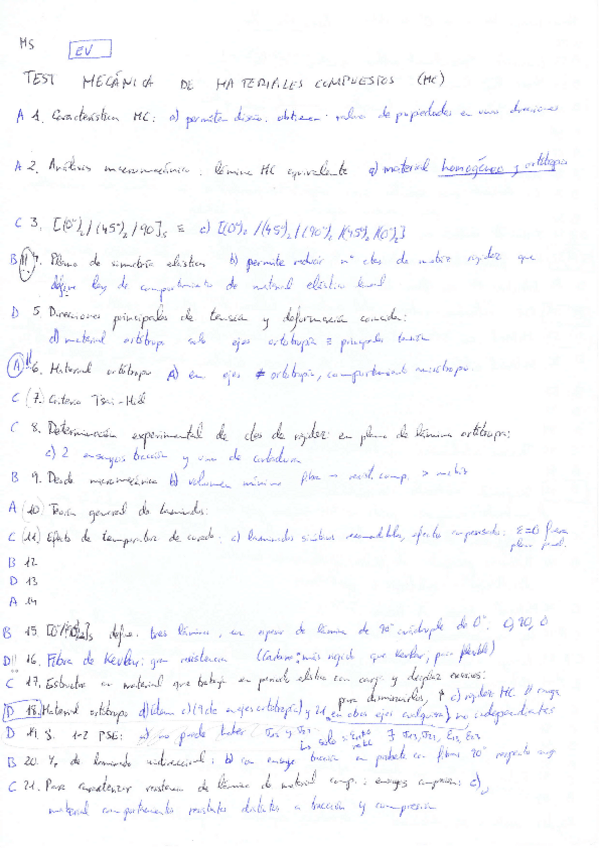 MS EV
TEST MECÁNICA DE MATERIALES COMPUESTOS (MC)
A 1. Característica MC: a) permiten diseño, obtienen valores de propiedades en unas direcciones
A 2. Análisis micromecánico. lámina MC equivalente a) material homogéneo y ortótropo
C 3. c)
B 4. Plano de simetría elástica b) permite reducir nº ctes de matriz rigidez que
define ley de comportamiento de material elástico lineal
D 5. Direcciones principales de tensión y deformación coincide:
d) material ortótropo solo ejes ortotropía ≡ principales tensión
A 6. Material ortótropo A) en ejes ≠ ortotropía, comportamiento anisótropo.
C (7.) Criterio Tsai-Hill
C 8. Determinación experimental de ctes de rigidez en plano de lámina ortótropa:
c) 2 ensayos tracción y uno de cortadura
B 9. Desde micromecánica b) volumen mínimo fibra → resist. comp. > matriz
A (10) Teoría general de laminados:
C (11) Efecto de temperatura de curado: c) laminados simétricos
B 12
D 13
A 14
B 15. define tres láminas, en espesor de lámina de 90º cuádruple de 0º. 0, 90, 0
D!! 16. Fibra de Kevlar: gran resistencia (Carbono: más rígido que kevlar, pero flexible)
C 17. Estructura en material que trabaja en periodo elástico con carga y desplaz. excesivos:
para disminuirlos, ↑ c) rigidez MC // carga
D 18. Material ortótropo d) (9 de ejes ortotropía) y 21 en otros ejes cualquiera) no independientes
D 19. 1-2 PSE: no puede haber
B 20. de laminado unidireccional: b) con ensayo tracción en probeta con fibras 90º respecto
C 21. Para caracterizar resistencia de lámina de material comp.: ensayos compresión: c)
material comportamiento resistente distinto a tracción y compresión